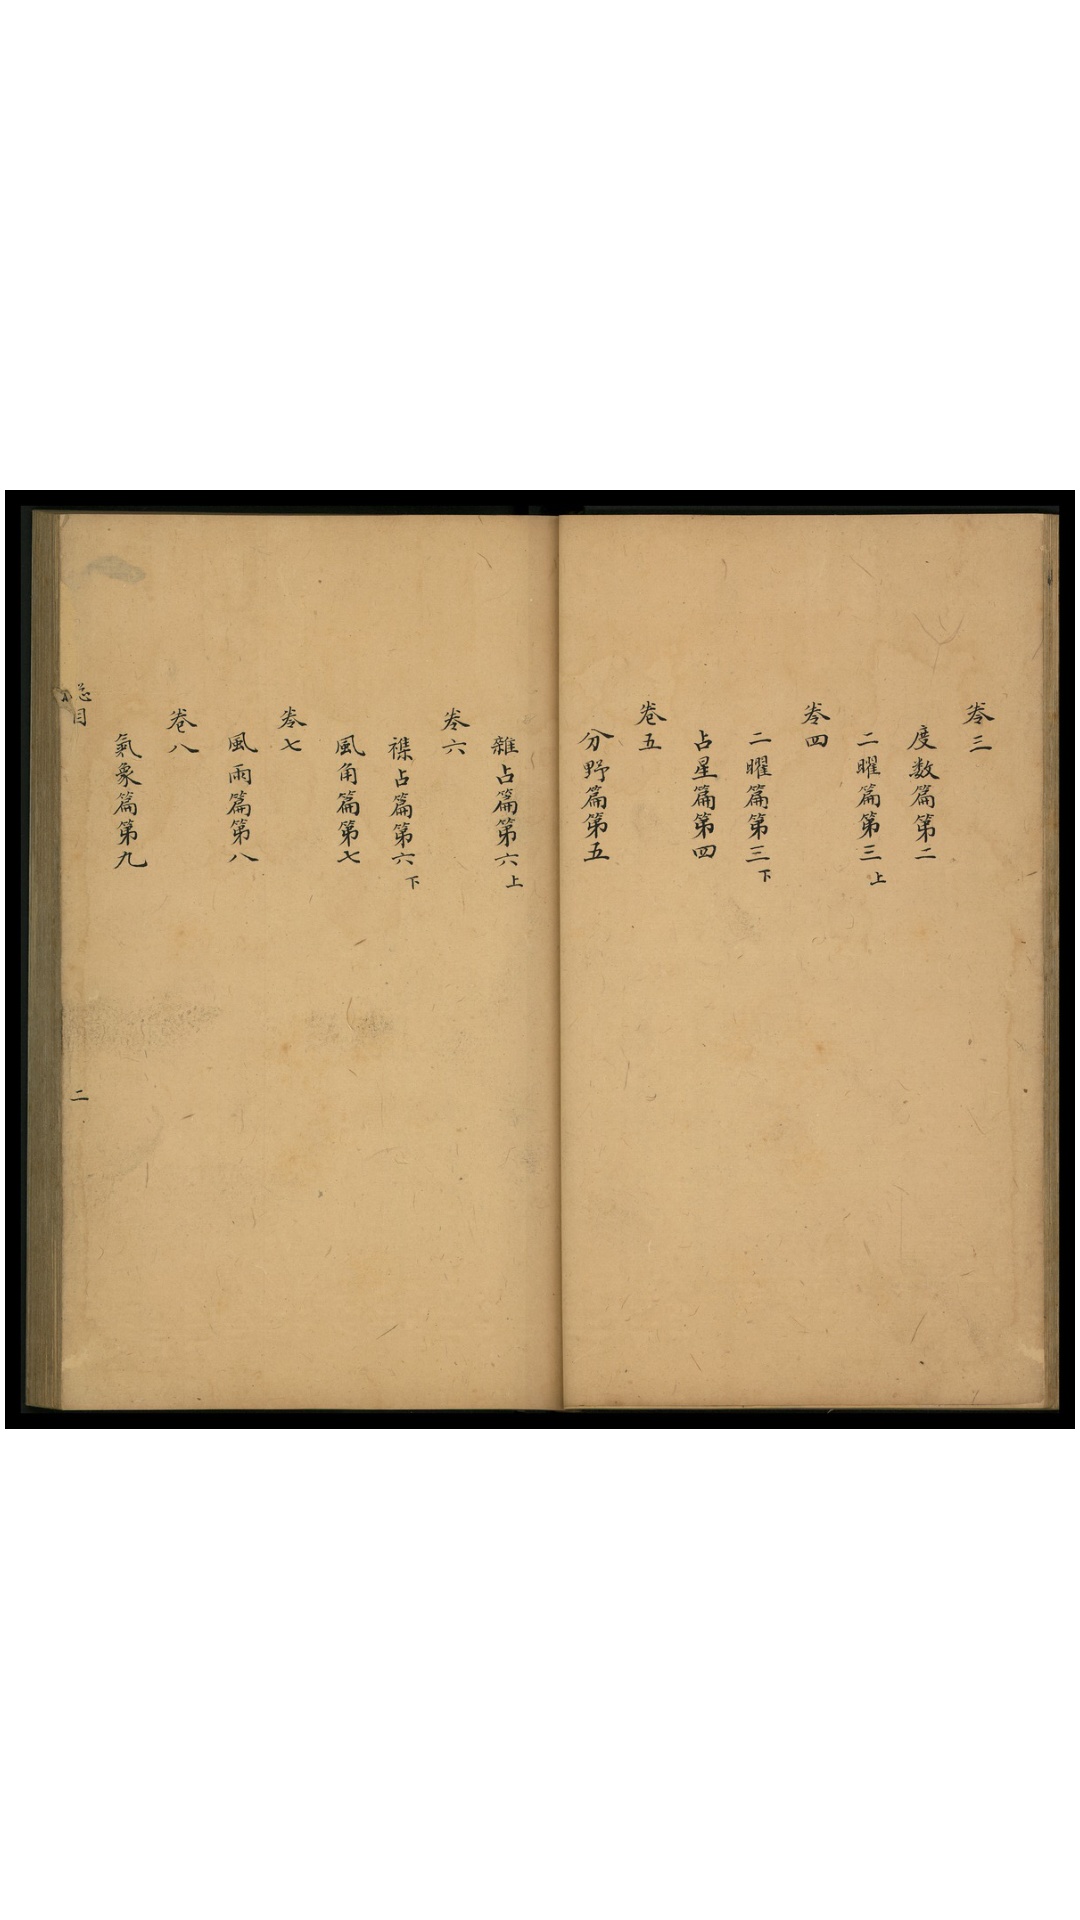 卷三
度数篇第二
二曜篇第三上
卷四
二曜篇第三下
占星篇第四
卷五
分野篇第五
雜占篇第六上
卷六
襍占篇第六下
風角篇第七
卷七
風雨篇第八
卷八
氣象篇第九
总目
二